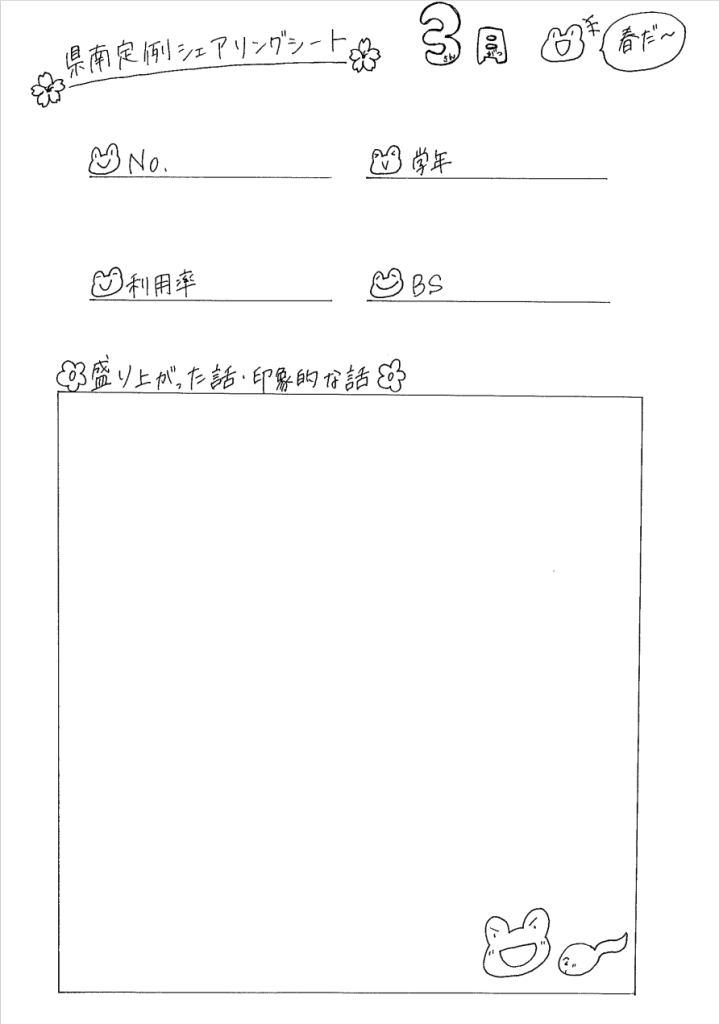 県南定例シェアリングシート 3月 春だ〜
No. 学年
利用率 BS
盛り上がった話・印象的な話